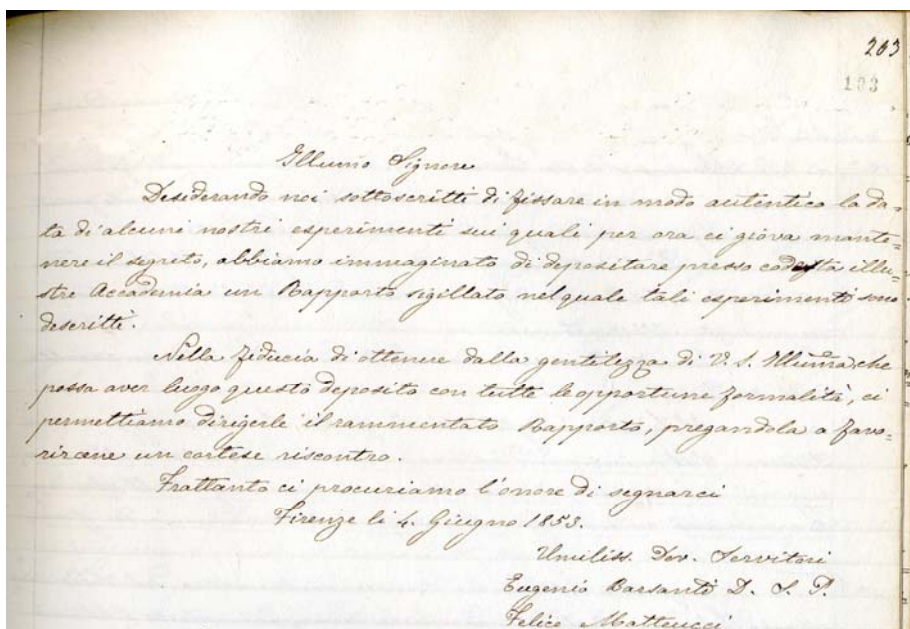 203
103
Illumo Signore
Desiderando noi sottoscritti di fissare in modo autentico la da=
ta di alcuni nostri esperimenti sui quali per ora ci giova mante=
nere il segreto, abbiamo immaginato di depositare presso codesta illu=
stre Accademia un Rapporto sigillato nel quale tali esperimenti sono
descritti.
Nella fiducia di ottenere dalla gentilezza di V. S. Illuma che
possa aver luogo questo deposito con tutte le opportune formalità, ci
permettiamo dirigerle il rammentato Rapporto, pregandola a favo=
rircene un cortese riscontro.
Frattanto ci procuriamo l'onore di segnarci
Firenze li 4. Giugno 1853.
Umiliss. Dev. Servitori
Eugenio Barsanti D. S. P.
Felice Matteucci